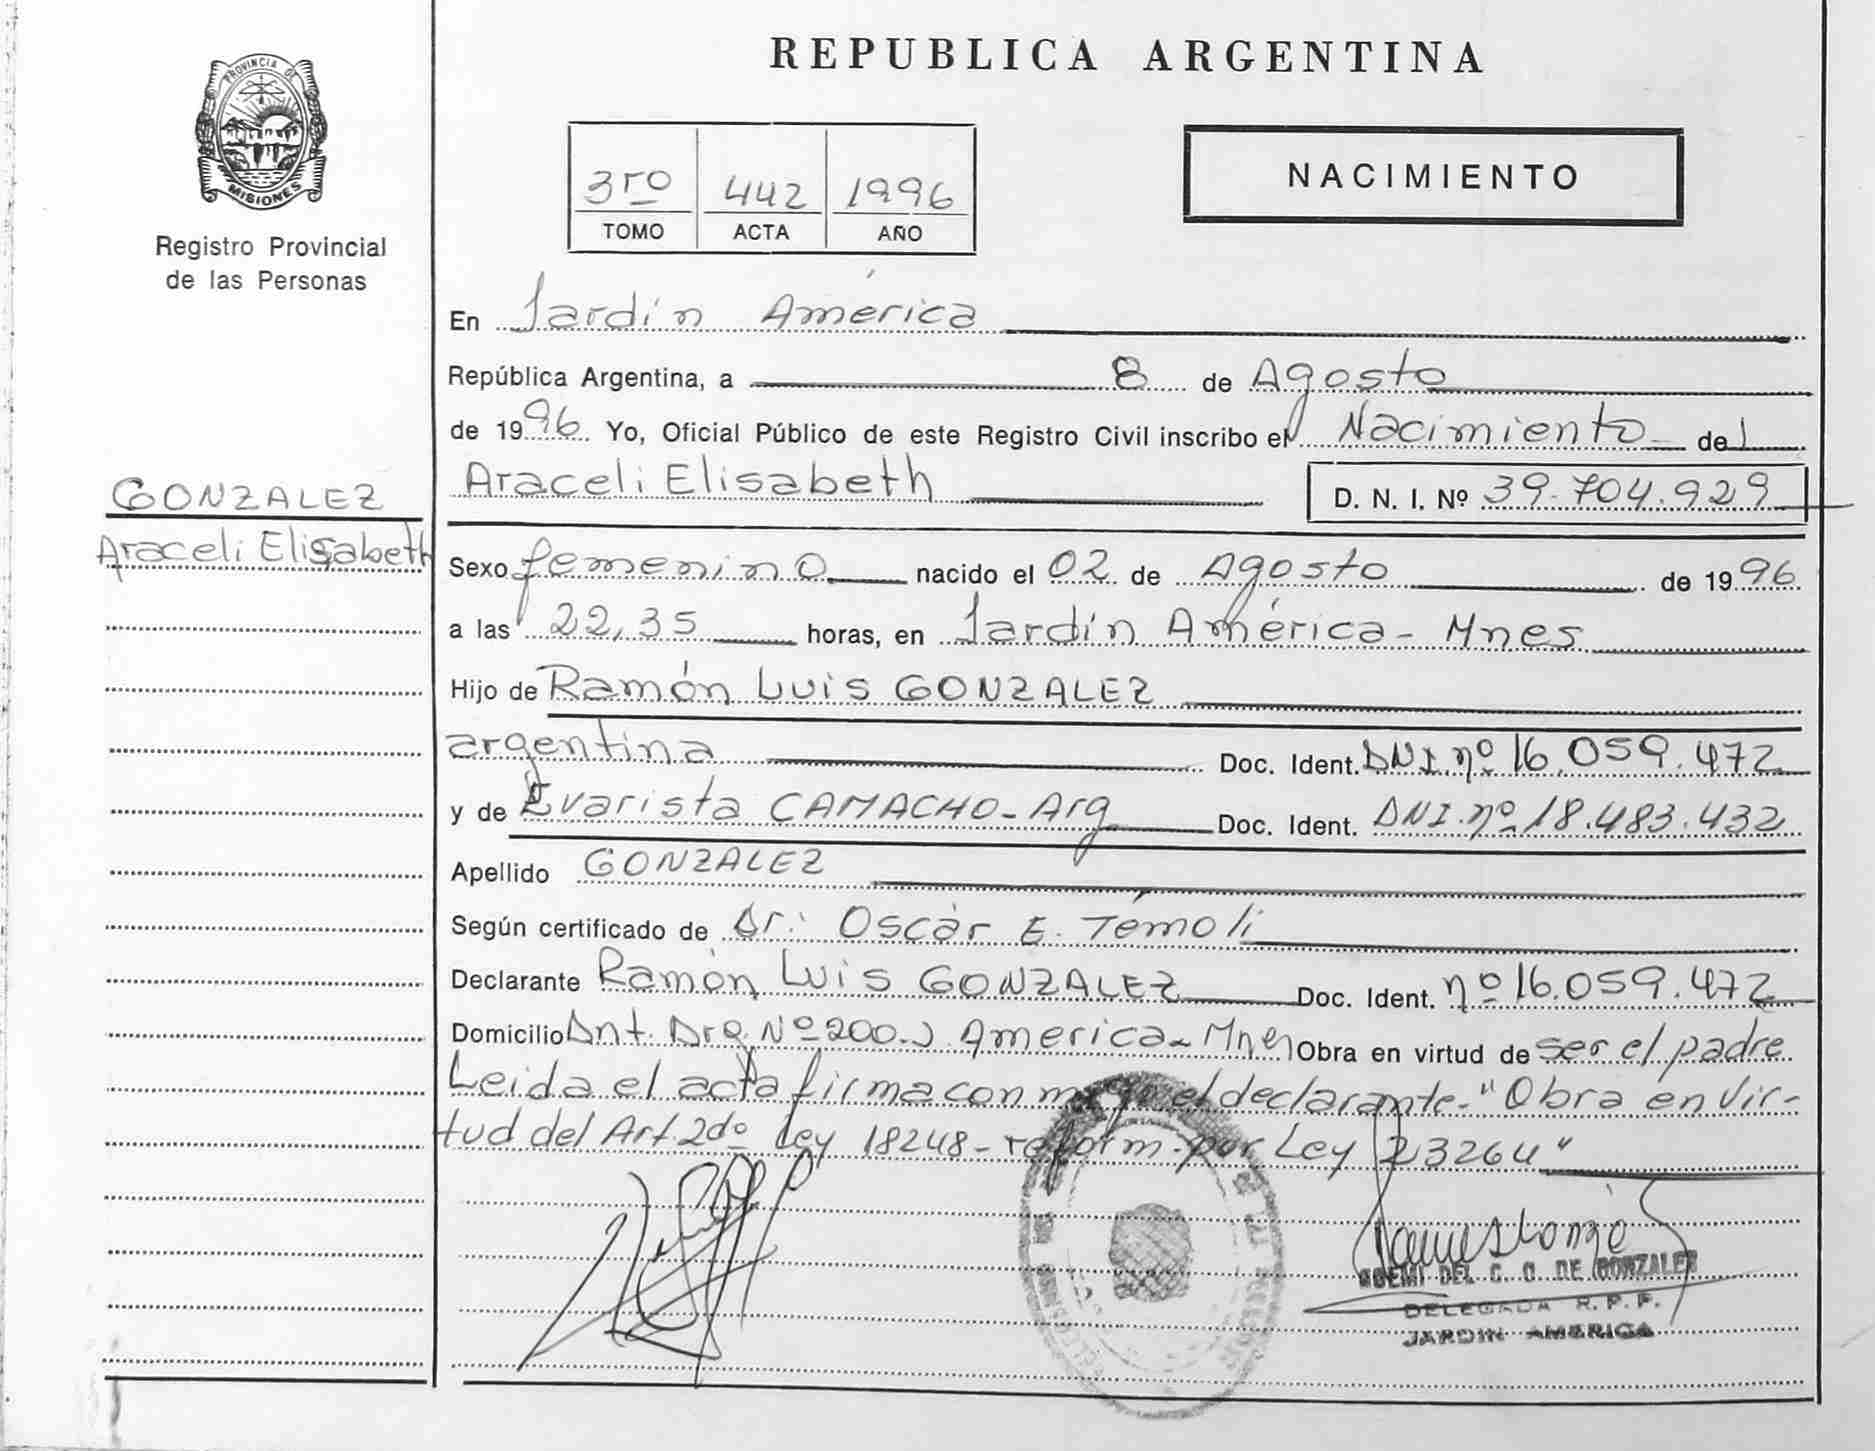 REPUBLICA ARGENTINA
PROVINCIA DE
MISIONES
Registro Provincial
de las Personas
3ro 442 1996
TOMO ACTA AÑO
NACIMIENTO
En Jardín América
República Argentina, a 8 de Agosto
de 1996 Yo, Oficial Público de este Registro Civil inscribo el Nacimiento de
GONZALEZ
Araceli Elisabeth
Araceli Elisabeth D. N. I. Nº 39.704.929
Sexo femenino nacido el 02 de Agosto de 1996
a las 22,35 horas, en Jardín América - Mnes
Hijo de Ramón Luis GONZALEZ
argentina Doc. Ident. DNI. nº 16.059.472
y de Evarista CAMACHO - Arg Doc. Ident. DNI. nº 18.483.432
Apellido GONZALEZ
Según certificado de Dr: Oscar E. Témoli
Declarante Ramón Luis GONZALEZ Doc. Ident. nº 16.059.472
Domicilio Nº 200. J America - Mnes Obra en virtud de ser el padre
Leida el acta firma con migo el declarante - "Obra en Vir-
tud del Art. 2do ley 18248 - reform. por Ley 23264"
NOEMI DEL C. O. DE GONZALEZ
DELEGADA R. P. P.
JARDIN AMERICA